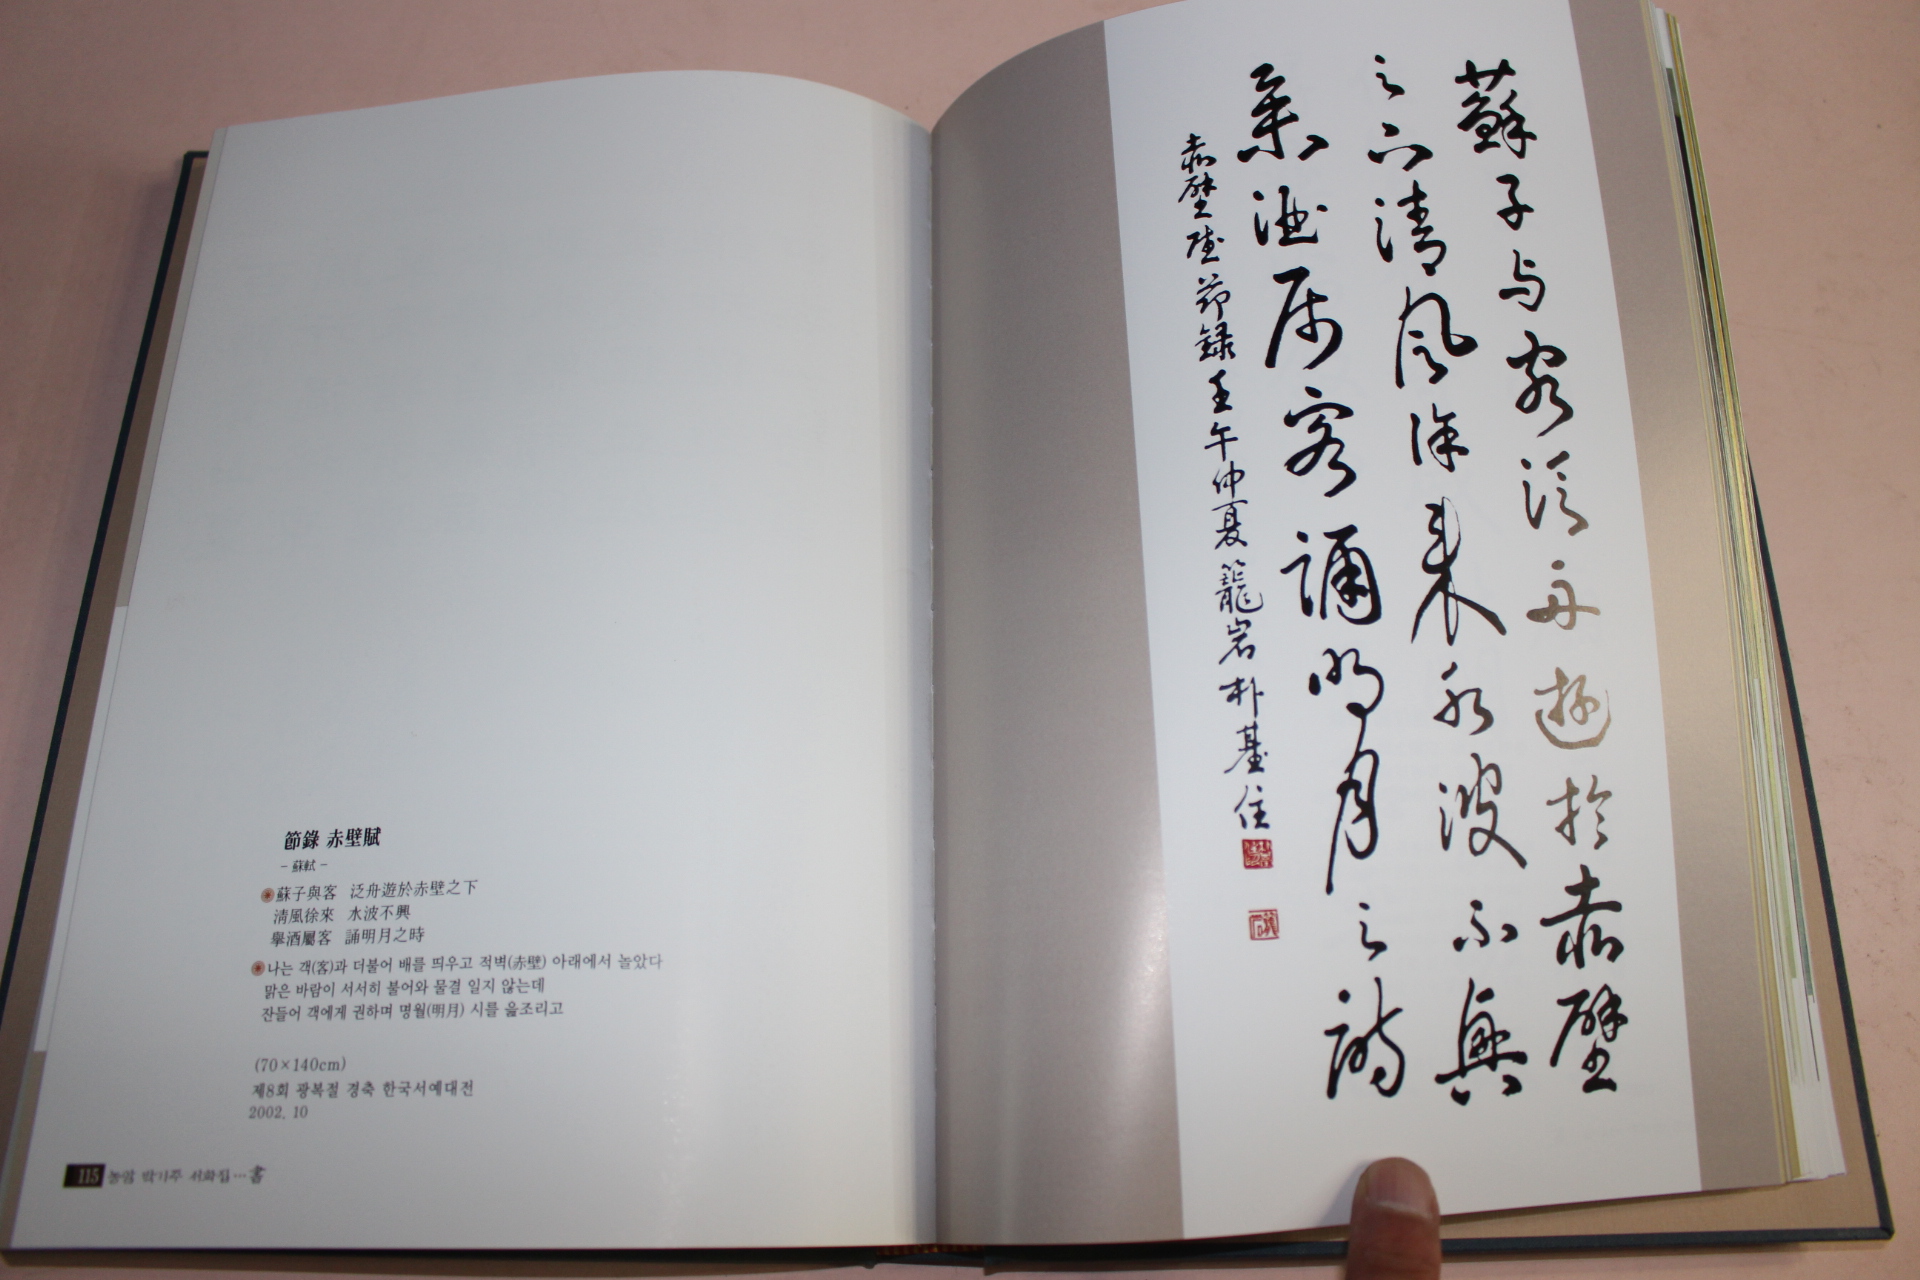 節錄 赤壁賦
- 蘇軾 -
蘇子與客 泛舟遊於赤壁之下
清風徐來 水波不興
擧酒屬客 誦明月之時
나는 객(客)과 더불어 배를 띄우고 적벽(赤壁) 아래에서 놀았다
맑은 바람이 서서히 불어와 물결 일지 않는데
잔들어 객에게 권하며 명월(明月) 시를 읊조리고
(70×140cm)
제8회 광복절 경축 한국서예대전
2002. 10
115 농암 박기주 서화집…書
蘇子与客泛舟遊於赤壁
之下清風徐來水波不興
舉酒属客誦明月之詩
赤壁賦節録壬午仲夏籠岩朴基住